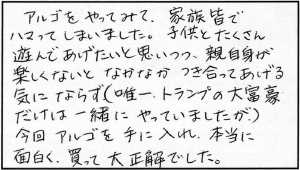 アルゴを やってみて、家族皆で
ハマって しまいました。子供とたくさん
遊んであげたいと思いつつ、親自身が
楽しくないと なかなか つき合ってあげる
気に ならず(唯一、トランプの大富豪
だけは 一緒に やっていましたが)
今回 アルゴを 手に入れ、本当に
面白く、買って 大正解でした。